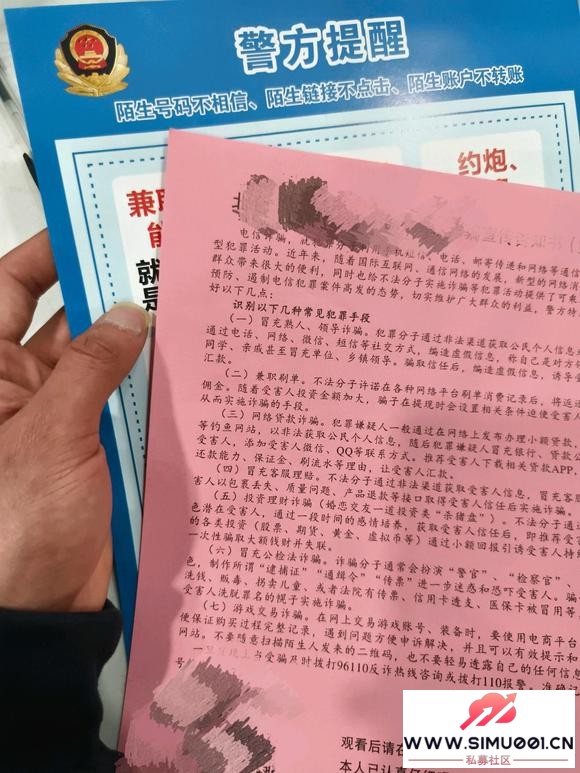 警方提醒
陌生号码不相信、陌生链接不点击、陌生账户不转账
约炮、
兼职
能
就
是
骗宣传告知书（
电信诈骗，就是犯罪分子利用手机短信、电话、邮寄传递和网络等通信
型犯罪活动。近年来，随着国际互联网、通信网络的发展，新型的网络消
群众带来很大的便利，同时也给不法分子实施诈骗等犯罪活动提供了可乘
预防、遏制电信犯罪案件高发的态势，切实维护广大群众的利益，警方特
好以下几点：
识别以下几种常见犯罪手段
（一）冒充熟人、领导诈骗。犯罪分子通过非法渠道获取公民个人信息
通过电话、网络、微信、短信等社交方式，编造虚假信息，称自己是对方
同学、亲戚甚至冒充单位、乡镇领导。骗取信任后，编造虚假信息，诱导
汇款。
（二）兼职刷单。不法分子许诺在各种网络平台刷单消费记录后，将返还
佣金。随着受害人投资金额加大，骗子在提现时会设置相关条件迫使受害人
从而实施诈骗的手段。
（三）网络贷款诈骗。犯罪嫌疑人一般通过在网络上发布办理小额贷款、
等钓鱼网站，以非法获取公民个人信息，随后犯罪嫌疑人冒充银行、贷款公
受害人，添加受害人微信、QQ等联系方式。推荐受害人下载相关贷款APP，
还款能力、保证金、刷流水等理由，让受害人汇款。
（四）冒充客服理赔。不法分子通过非法渠道获取受害人信息，冒充客服
害人以包裹丢失、质量问题、产品退款等接口取得受害人信任后实施诈骗。
（五）投资理财诈骗（婚恋交友一道投资类“杀猪盘”）。不法分子通过
色潜在受害人，通过一段时间的感情培养，获取受害人信任后，即推荐受害
的各类投资（股票、期货、黄金、虚拟币等）通过小额回报引诱受害人持续
一次性骗取大额钱财并失联。
（六）冒充公检法诈骗。诈骗分子通常会扮演“警官”、“检察官”、
色，制作所谓“逮捕证”“通缉令”“传票”进一步迷惑和恐吓受害人。骗
洗钱、贩毒、拐卖儿童、或者法院有传票、信用卡透支、医保卡被冒用等
受害人洗脱罪名的幌子实施诈骗。
（七）游戏交易诈骗。在网上交易游戏账号、装备时，要使用电商平台
便保证购买过程完整记录，遇到问题方便申诉解决，并且可以有效提示和
网站。不要随意扫描陌生人发来的二维码，也不要轻易透露自己的任何信息
一旦发现上当受骗及时拨打96110反诈热线咨询或拨打110报警。准确记
号
观看后请在
本人已认真仔细
WWW.SIMU001.CN
私募社区